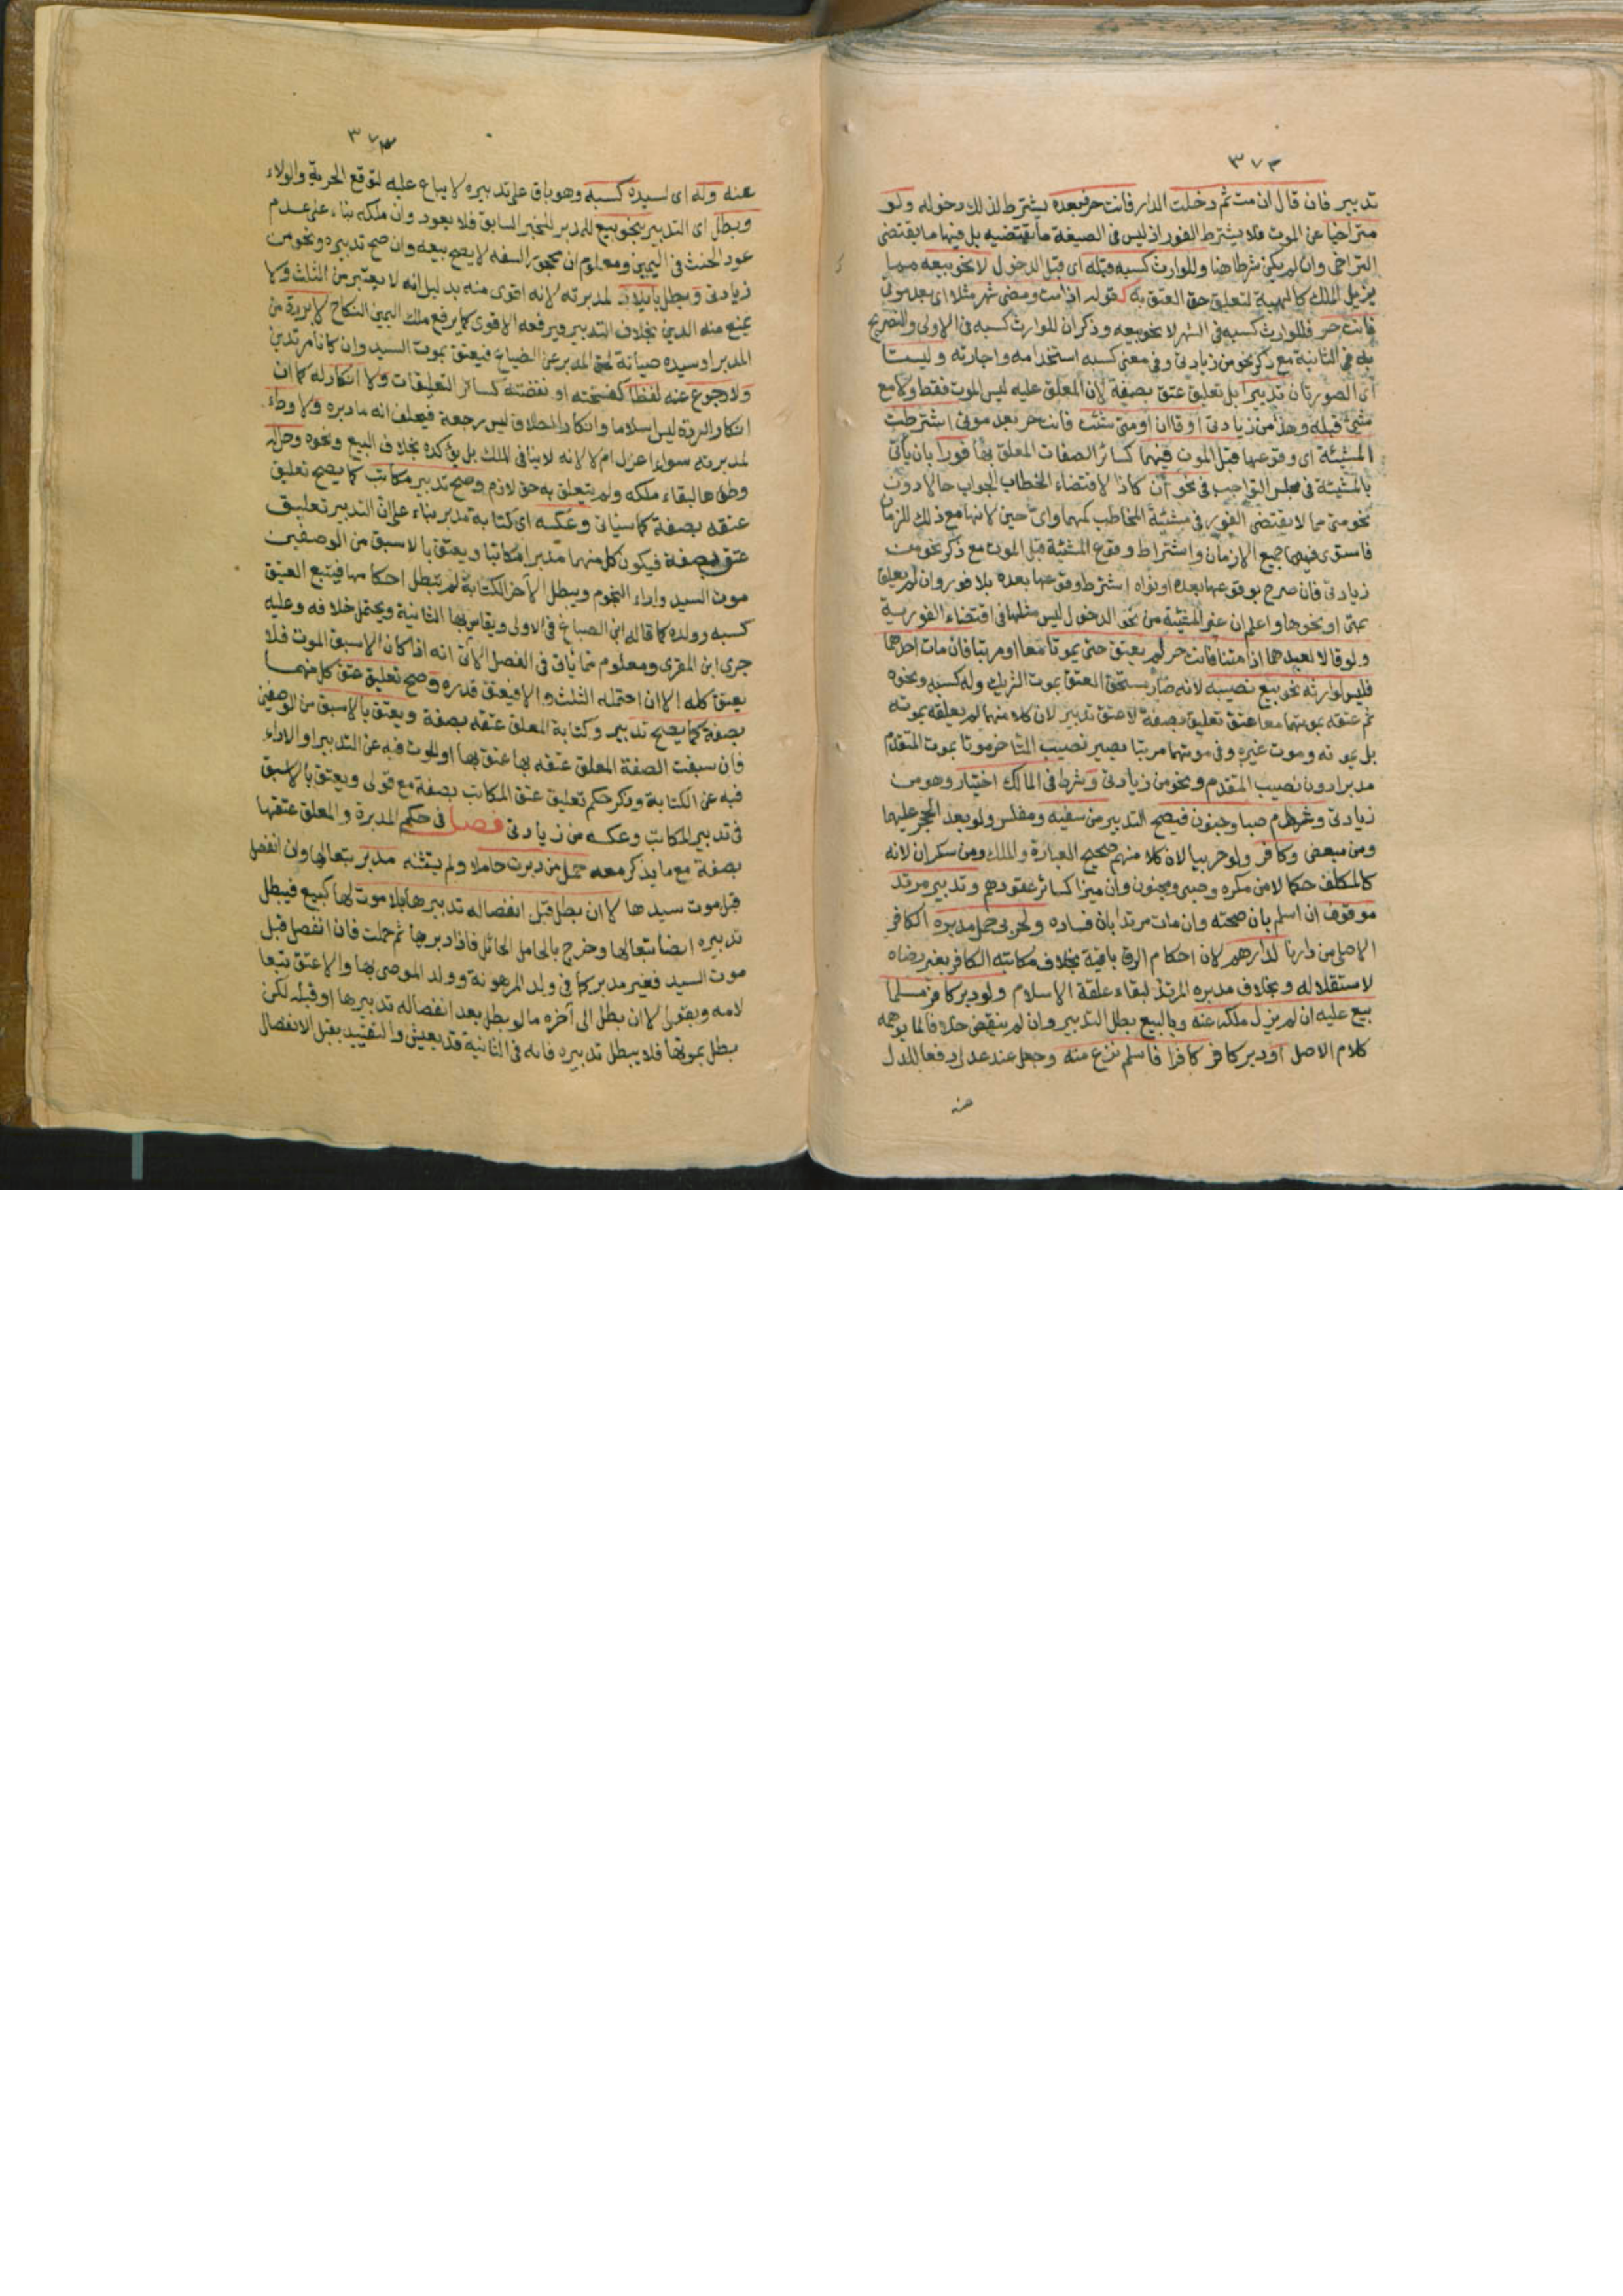 ٣٧٢
تدبير فان قال ان مت ثم دخلت الدار فانت حر فبعده يشترط لذلك دخوله ولو
متراخيا عن الموت فلا يشترط الفور اذ ليس فى الصيغة ما يقتضيه بل فيها ما يقتضى
التراخى وان لم يكن شرطا هنا وللوارث كسبه قبله اى قبل الدخول لا نحو بيعه مما
يزيل الملك كالهبة لتعلق حق العتق به كقوله اذا مت ومضى شهر مثلا اى بعد موتى
فانت حر فللوارث كسبه فى الشهر لا نحو بيعه وذكر ان للوارث كسبه فى الاولى والتصريح
به فى الثانية مع ذكر نحو من زيادتى وفى معنى كسبه استخدامه واجارته وليستا
اى الصورتان تدبيرا بل تعليق عتق بصفة لان المعلق عليه ليس الموت فقط ولا مع
شئ قبله وهذا من زيادتى او قال ان او متى شئت فانت حر بعد موتى اشترطت
المشيئة اى وقوعها قبل الموت فيهما كسائر الصفات المعلق بها فورا بان يأتى
بالمشيئة فى مجلس التواجب فى نحو ان كاذا لاقتضاء الخطاب الجواب حالا دون
نحو متى مما لا يقتضى الفور فى مشيئة المخاطب كمهما واى حين لانها مع ذلك للزمان
فاستوى فيها جميع الازمان واشتراط وقوع المشيئة قبل الموت مع ذكر نحو من
زيادتى فان صرح بوقوعها بعده او نواه اشترط وقوعها بعده بلا فور وان لم يعلق
بمتى او نحوها واعلم ان غير المشيئة من نحو الدخول ليس مثلها فى اقتضاء الفورية
ولو قالا لعبدهما اذا متنا فانت حر لم يعتق حتى يموتا معا او مرتبا فان مات احدهما
فليس لوارثه نحو بيع نصيبه لانه صار مستحق العتق بموت الشريك وله كسبه ونحوه
ثم عتقه بموتهما معا عتق تعليق بصفة لا عتق تدبير لان كلا منهما لم يعلقه بموته
بل بموته وموت غيره وفى موتهما مرتبا يصير نصيب المتاخر موتا بموت المتقدم
مدبرا دون نصيب المتقدم ونحو من زيادتى وشرط فى المالك اختيار وهو من
زيادتى وعدم صبا وجنون فيصح التدبير من سفيه ومفلس ولو بعد الحجر عليهما
ومن مبعض وكافر ولو حربيا لان كلا منهم صحيح العبارة والملك ومن سكران لانه
كالمكلف حكما لا من مكره وصبى ومجنون وان ميزا كسائر عقودهم وتدبير مرتد
موقوف ان اسلم بان صحته وان مات مرتدا بان فساده ولحربى حمل مدبره الكافر
الاصلى من دارنا لدارهم لان احكام الرق باقية بخلاف مكاتبه الكافر بغير رضاه
لاستقلاله وبخلاف مدبره المرتد لبقاء علقة الاسلام ولو دبر كافر مسلما
بيع عليه ان لم يزل ملكه عنه وبالبيع بطل التدبير وان لم ينقض خلافا لما يوهمه
كلام الاصل او دبر كافر كافرا فاسلم نزع منه وجعل عند عدل دفعا للذل
عنه
٣٧٣
عنه وله اى لسيده كسبه وهو باق على تدبيره لا يباع عليه لتوقع الحرية والولاء
وبطل اى التدبير بنحو بيع للمدبر للخبر السابق فلا يعود وان ملكه بناء على عدم
عود الحنث فى اليمين ومعلوم ان محجور السفه لا يصح بيعه وان صح تدبيره ونحو من
زيادتى وبطل بايلاد لمدبرته لانه اقوى منه بدليل انه لا يعتبر من الثلث ولا
يمنع منه الدين بخلاف التدبير فيرفعه الاقوى كما يرفع ملك اليمين النكاح لا بردة من
المدبر او سيده صيانة لحق المدبر عن الضياع فيعتق بموت السيد وان كانا مرتدين
ولا رجوع عنه لفظا كفسخته او نقضته كسائر التعليقات ولا انكار له كما ان
انكار الردة ليس اسلاما وانكار الطلاق ليس رجعة فيحلف انه ما دبره ولا وطء
لمدبرته سواء اعزل ام لا لانه لا ينافى الملك بل يؤكده بخلاف البيع ونحوه وحل له
وطؤها لبقاء ملكه ولم يتعلق به حق لازم وصح تدبير مكاتب كما يصح تعليق
عتقه بصفة كما سياتى وعكسه اى كتابة مدبر بناء على ان التدبير تعليق
عتق بصفة فيكون كل منهما مدبرا مكاتبا ويعتق بالاسبق من الوصفين
موت السيد واداء النجوم ويبطل الآخر لكن الكتابة لم تبطل احكامها فيتبع العتيق
كسبه وولده كما قاله ابن الصباغ فى الاولى ويقاس بها الثانية ويحتمل خلافه وعليه
جرى ابن المقرى ومعلوم مما ياتى فى الفصل الآتى انه اذا كان الاسبق الموت فلا
يعتق كله الا ان احتمله الثلث والا فيعتق قدره وصح تعليق عتق كل منهما
بصفة كما يصح تدبير وكتابة المعلق عتقه بصفة ويعتق بالاسبق من الوصفين
فان سبقت الصفة المعلق عتقه بها عتق بها او الموت فبه عن التدبير او الاداء
فبه عن الكتابة وذكر حكم تعليق عتق المكاتب بصفة مع قولى ويعتق بالاسبق
فى تدبير المكاتب وعكسه من زيادتى فصل فى حكم المدبرة والمعلق عتقها
بصفة مع ما يذكر معه حمل من دبرت حاملا ولم يستثنه مدبر تبعا لها وان انفصل
قبل موت سيدها لا ان بطل قبل انفصاله تدبيرها بلا موت لها كبيع فيبطل
تدبيره ايضا تبعا لها وخرج بالحامل الحائل فاذا دبرها ثم حملت فان انفصل قبل
موت السيد فغير مدبر كما فى ولد المرهونة وولد الموصى بها والا عتق تبعا
لامه وبقولى لا ان بطل الى آخره ما لو بطل بعد انفصاله تدبيرها او قبله لكن
بطل بموتها فلا يبطل تدبيره فانه فى الثانية قد يعيش والتقييد بقبل الانفصال